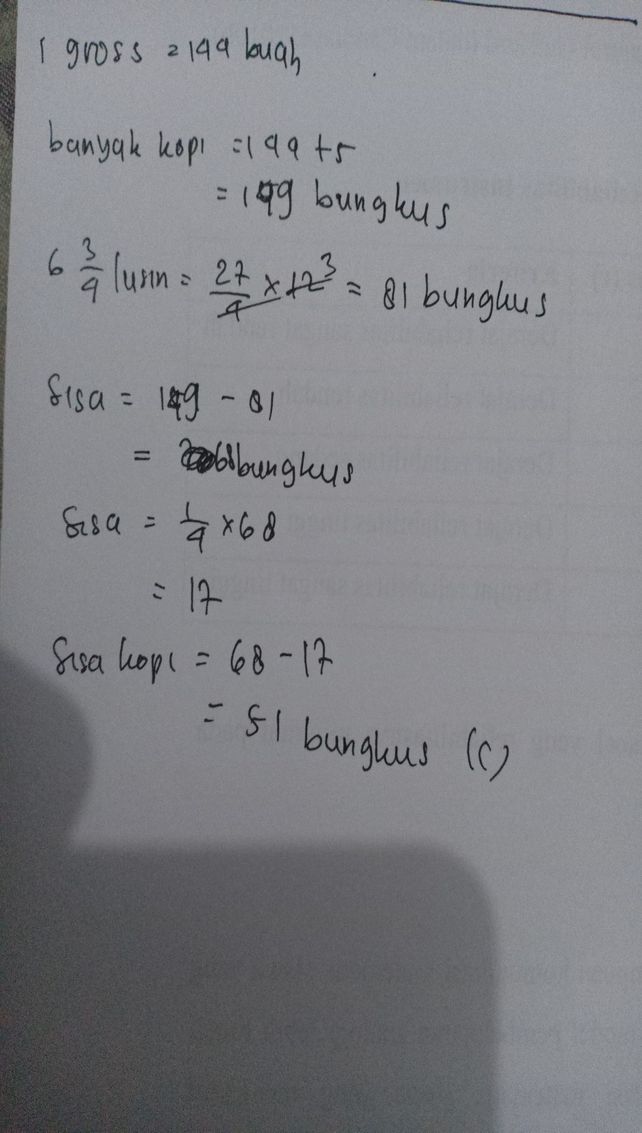 1 gross = 144 buah
banyak kopi = 144 + 5
= 149 bungkus
6 3/4 lusin = 27/4 x 12 3 = 81 bungkus
Sisa = 149 - 81
= 68 bungkus
Sisa = 1/4 x 68
= 17
Sisa kopi = 68 - 17
= 51 bungkus (C)